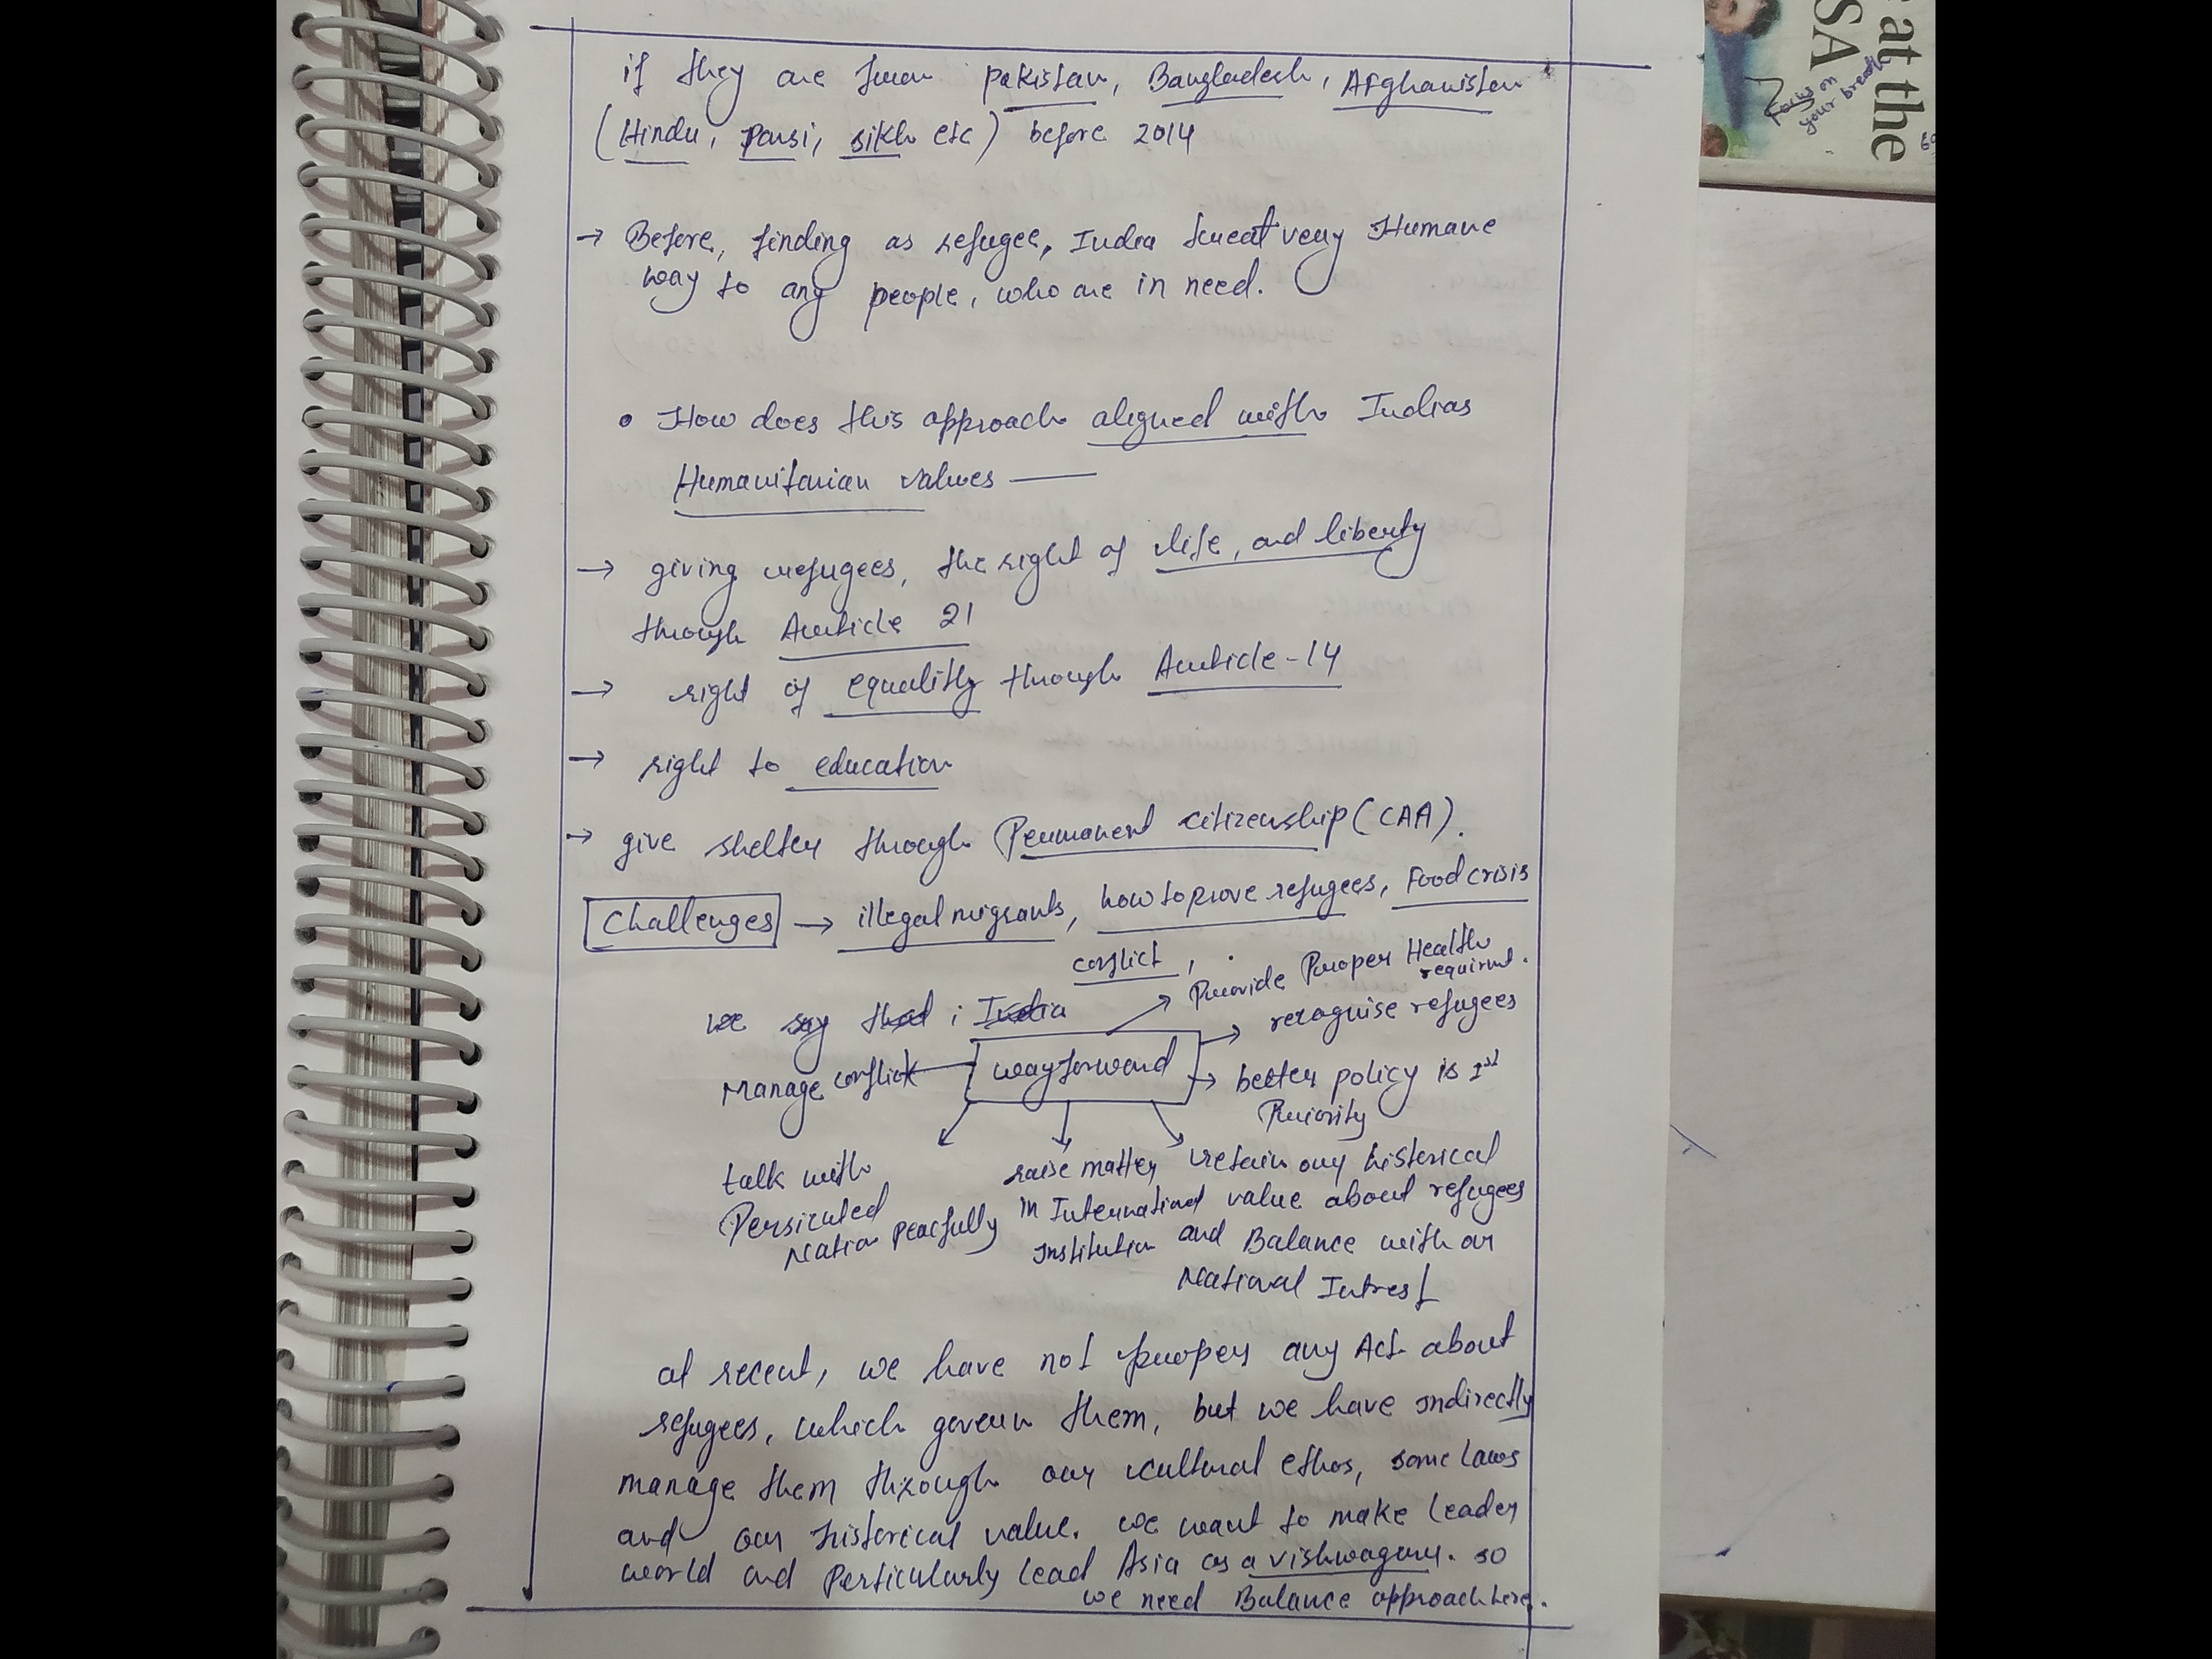 if they are from Pakistan, Bangladesh, Afghanistan
(Hindu, Parsi, sikh etc) before 2014
→ Before, finding as refugee, India treat very Humane
way to any people, who are in need.
• How does this approach aligned with Indias
Humanitarian values —
→ giving refugees, the right of life, and liberty
through Article 21
→ right of equality through Article-14
→ right to education
→ give shelter through Permanent citizenship (CAA).
Challenges → illegal migrants, how to prove refugees, Food crisis
conflict,
we say that ; India
Provide Proper Health
requirmt.
recognise refugees
way forward
Manage conflict
better policy is 1st
Priority
talk with
Persicuted
Nation Peacfully
raise matter
in Internationl
Institution
retain our historical
value about refugees
and Balance with our
National Intrest
at recent, we have not proper any Act about
refugees, which govern them, but we have indirectly
manage them through our cultural ethos, some laws
and our historical value. we want to make leader
world and Perticularly lead Asia as a vishwaguru. so
we need Balance approach here.
at the
SA
Focus on
your breath